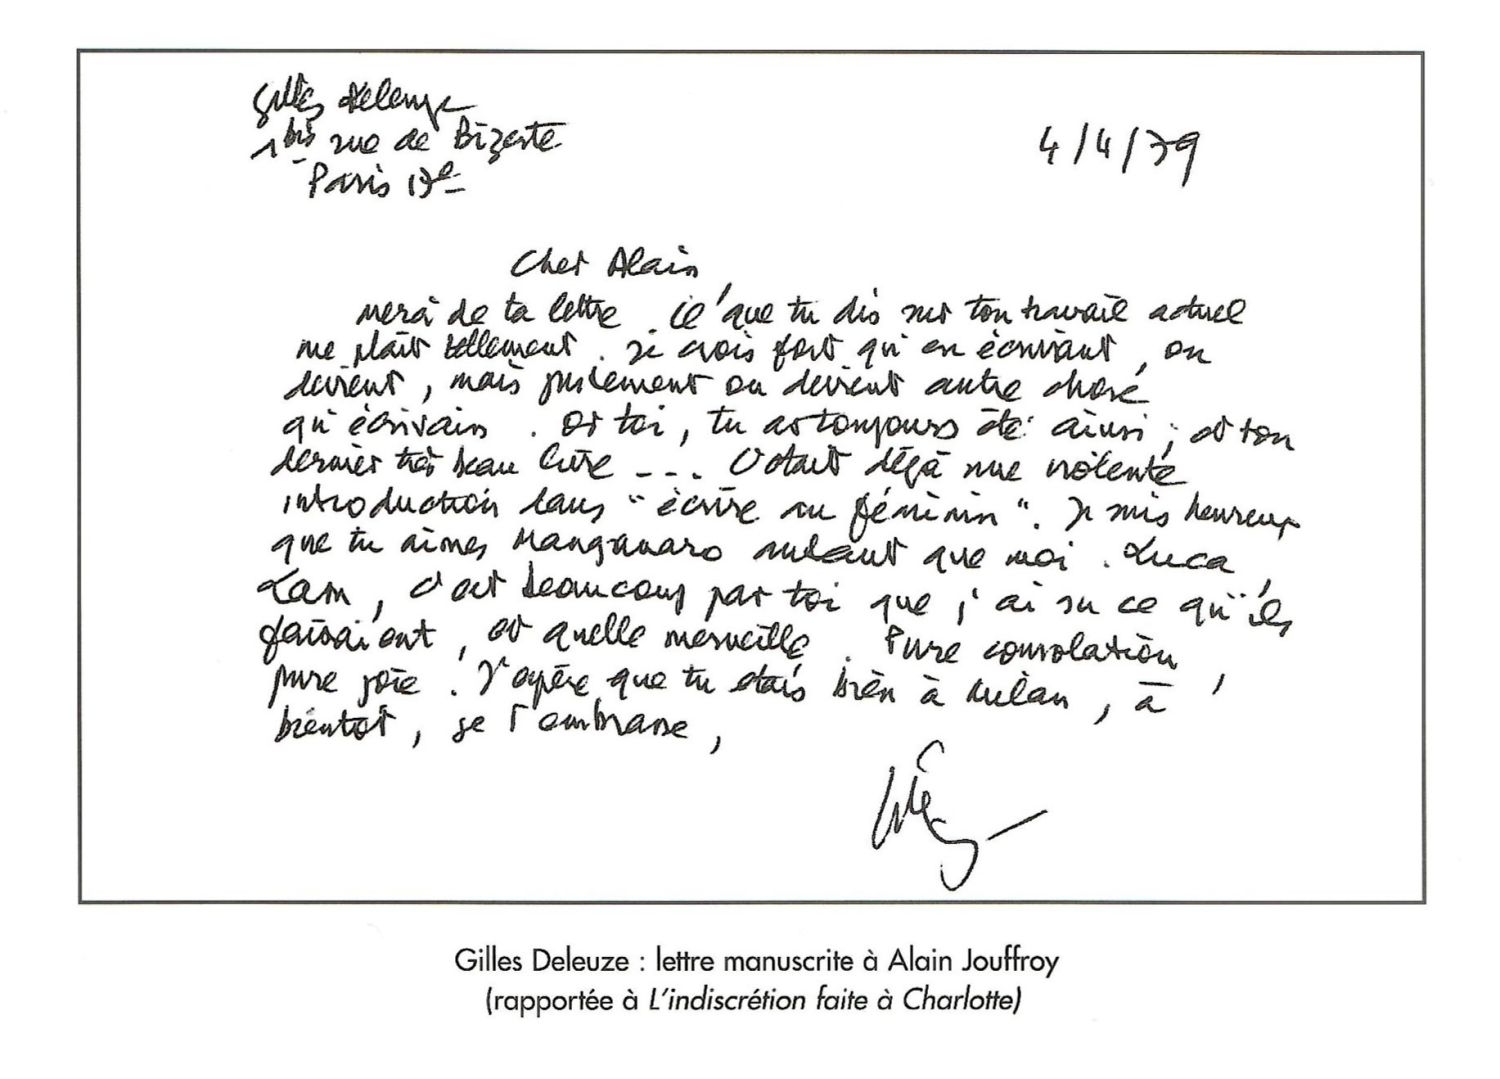 Gilles Deleuze
1 bis rue de Bizerte
Paris 17e
4/4/79
Cher Alain
merci de ta lettre. Ce que tu dis sur ton travail actuel
me plaît tellement. Je crois fort qu'en écrivant, on
devient, mais justement on devient autre chose
qu'écrivain. Or toi, tu as toujours été ainsi, et ton
dernier très beau livre --- C'était déjà une violente
introduction dans "écrire au féminin". Je suis heureux
que tu aimes Manganaro autant que moi. Luca
, c'est beaucoup par toi que j'ai su ce qu'ils
faisaient, et quelle merveille. Pure consolation,
pure joie. J'espère que tu étais bien à Milan, à
bientôt, je t'embrasse,
Gilles
Gilles Deleuze : lettre manuscrite à Alain Jouffroy
(rapportée à L'indiscrétion faite à Charlotte)